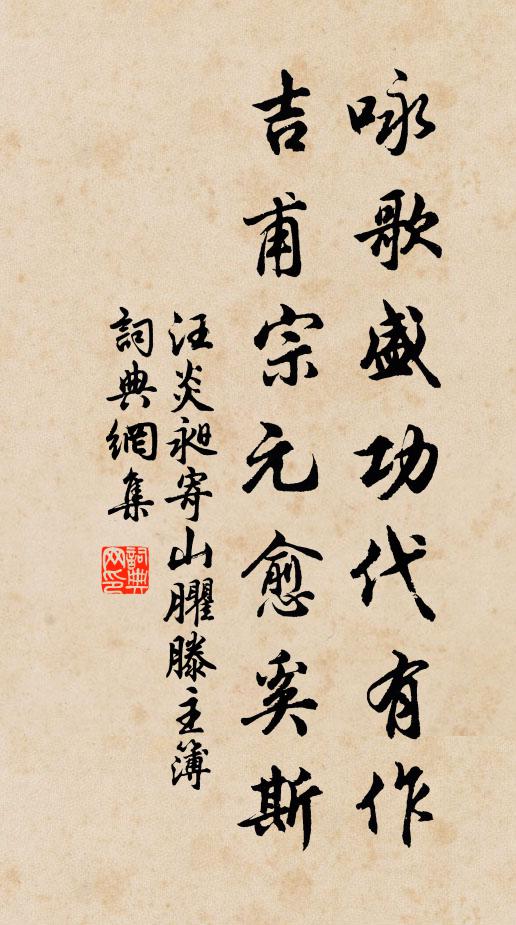 咏歌盛功代有作
吉甫宗元愈奚斯
汪炎昶寄山臞滕主簿
詞典網集
詞典網印